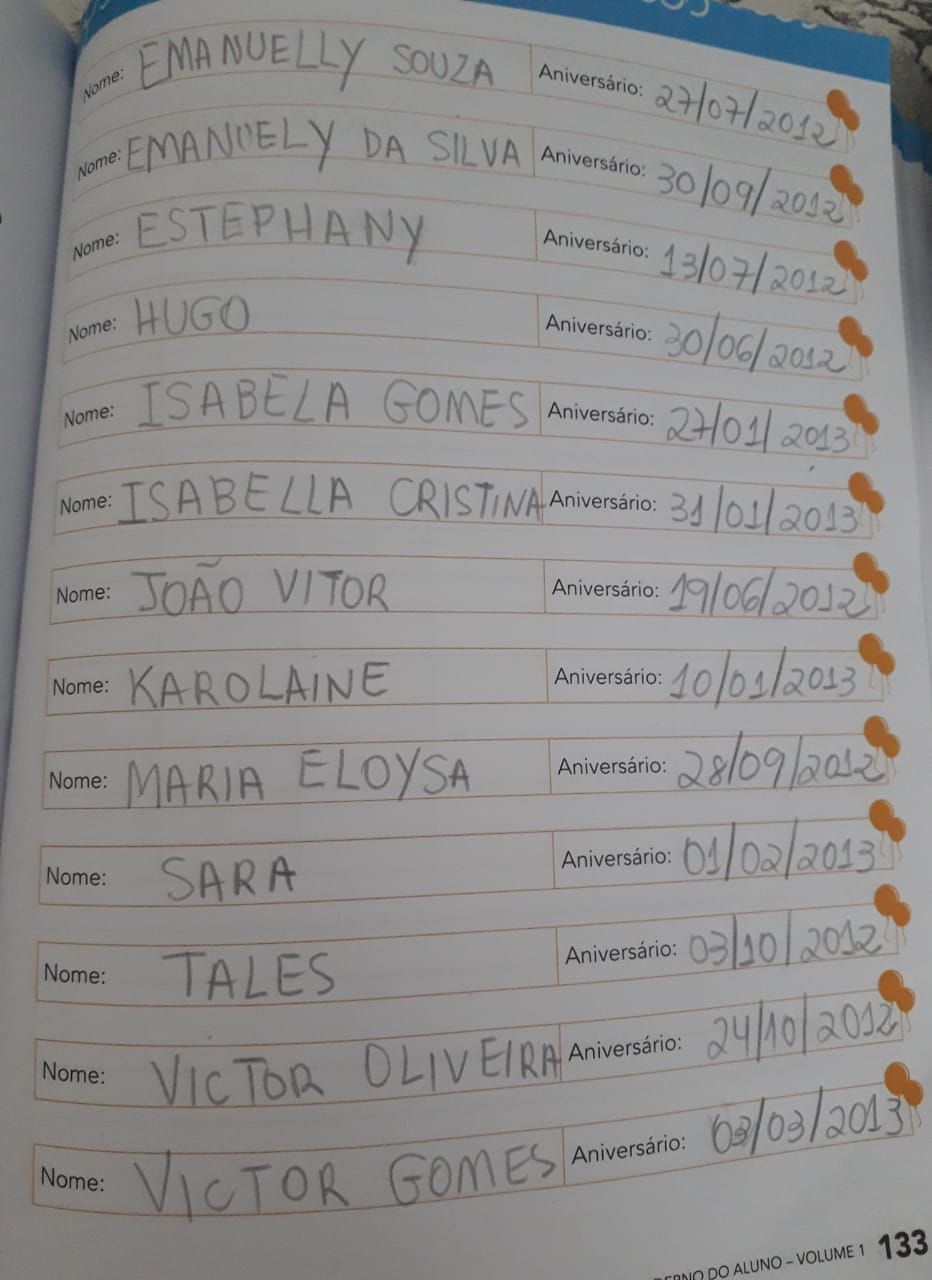 Nome: EMANUELLY SOUZA Aniversário: 27/07/2012
Nome: EMANUELY DA SILVA Aniversário: 30/09/2012
Nome: ESTEPHANY Aniversário: 13/07/2012
Nome: HUGO Aniversário: 30/06/2012
Nome: ISABELA GOMES Aniversário: 27/01/2013
Nome: ISABELLA CRISTINA Aniversário: 31/01/2013
Nome: JOÃO VITOR Aniversário: 19/06/2012
Nome: KAROLAINE Aniversário: 10/01/2013
Nome: MARIA ELOYSA Aniversário: 28/09/2012
Nome: SARA Aniversário: 01/02/2013
Nome: TALES Aniversário: 03/10/2012
Nome: VICTOR OLIVEIRA Aniversário: 24/10/2012
Nome: VICTOR GOMES Aniversário: 03/03/2013
DO ALUNO – VOLUME 1 133